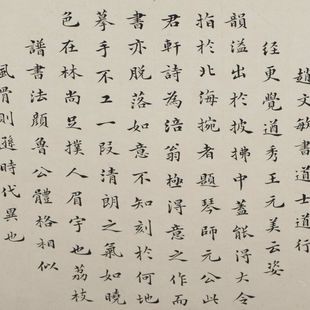 趙文敏書道士道行
径更覺道秀王元美云姿
韻溢出於披拂中蓋能得大令
指於北海捥者題琴師元公此
君軒詩為涪翁極得意之作而
書亦脫落如意不知刻於何地
摹手不工一段清朗之氣如曉
色在林尚足撲人眉宇也荔枝
譜書法顏魯公體格相似
風骨則遜時代異也